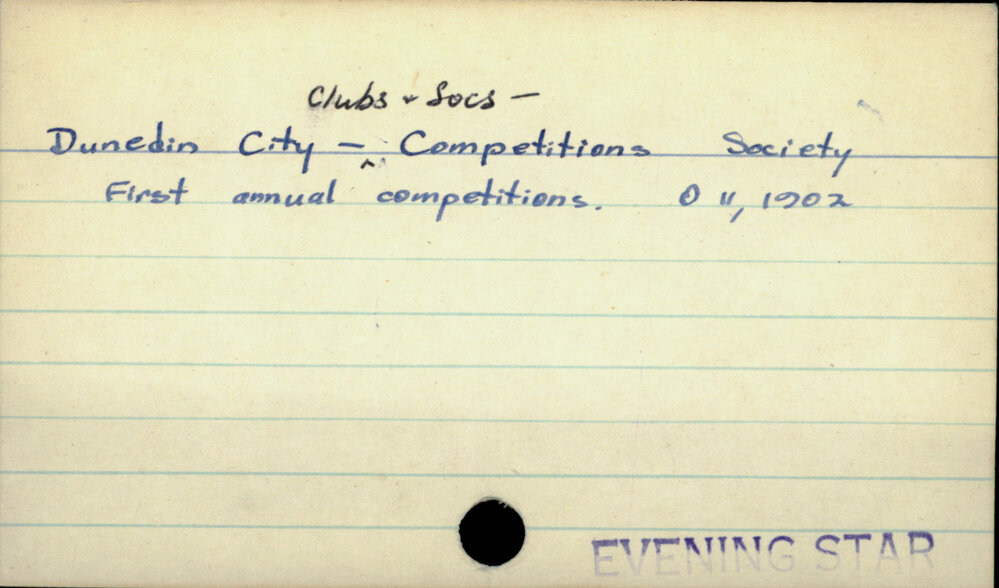 Clubs & Socs —
Dunedin City — ^ Competitions Society
First annual competitions. O 11, 1902
EVENING STAR